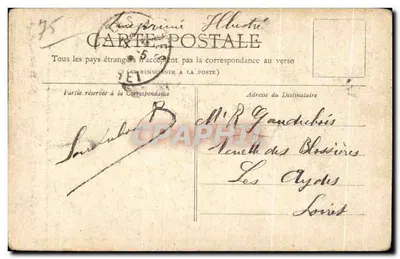 75
Imprimé Illustré
CARTE POSTALE
Tous les pays étrangers n'acceptent pas la correspondance au verso
(SE RENSEIGNER A LA POSTE)
Partie réservée à la Correspondance
Adresse du Destinataire
Mr R Gaudubois
Venelle des Blossières
Les Aydes
Loiret
CPARAMA